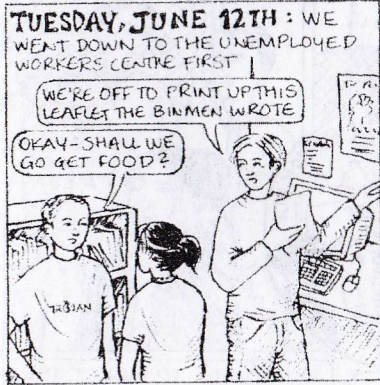 TUESDAY, JUNE 12TH: WE
WENT DOWN TO THE UNEMPLOYED
WORKERS CENTRE FIRST
WE'RE OFF TO PRINT UP THIS
LEAFLET THE BINMEN WROTE
OKAY-SHALL WE
GO GET FOOD?